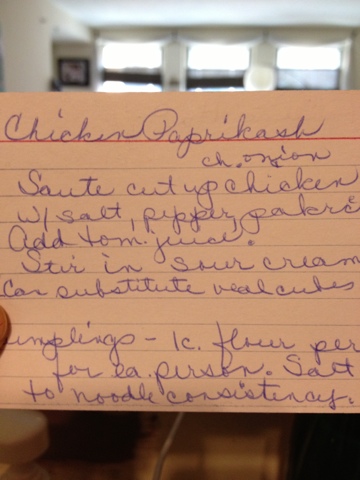 Chicken Paprikash
ch. onion
Saute cut up chicken
w/ salt, pepper,
Add tom. juice.
Stir in sour cream
Can substitute veal cubes
umplings - 1c. flour per
for ea. person. Salt
to noodle consistency.